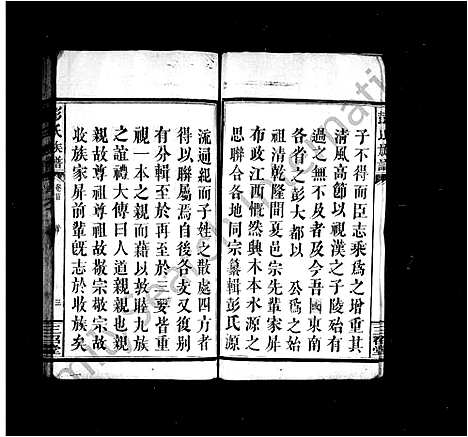 子不得而臣志乘為之增重其
清風高節以視漢之子陵殆有
過之無不及者及今吾國東南
各省之彭大都以 公為之始
祖清乾隆間夏邑宗先輩家屏
布政江西慨然興木本水源之
思聯合各地同宗纂輯彭氏源
流迥紀而子姓之散處四方者
得以聯屬焉自後各支又復別
有分輯至於再至於三要皆重
視一本之親而藉以敦睦九族
之誼禮大傳曰人道親親也親
親故尊祖尊祖故敬宗敬宗故
收族家屏前輩既志於收族矣
彭氏族譜
卷首
三